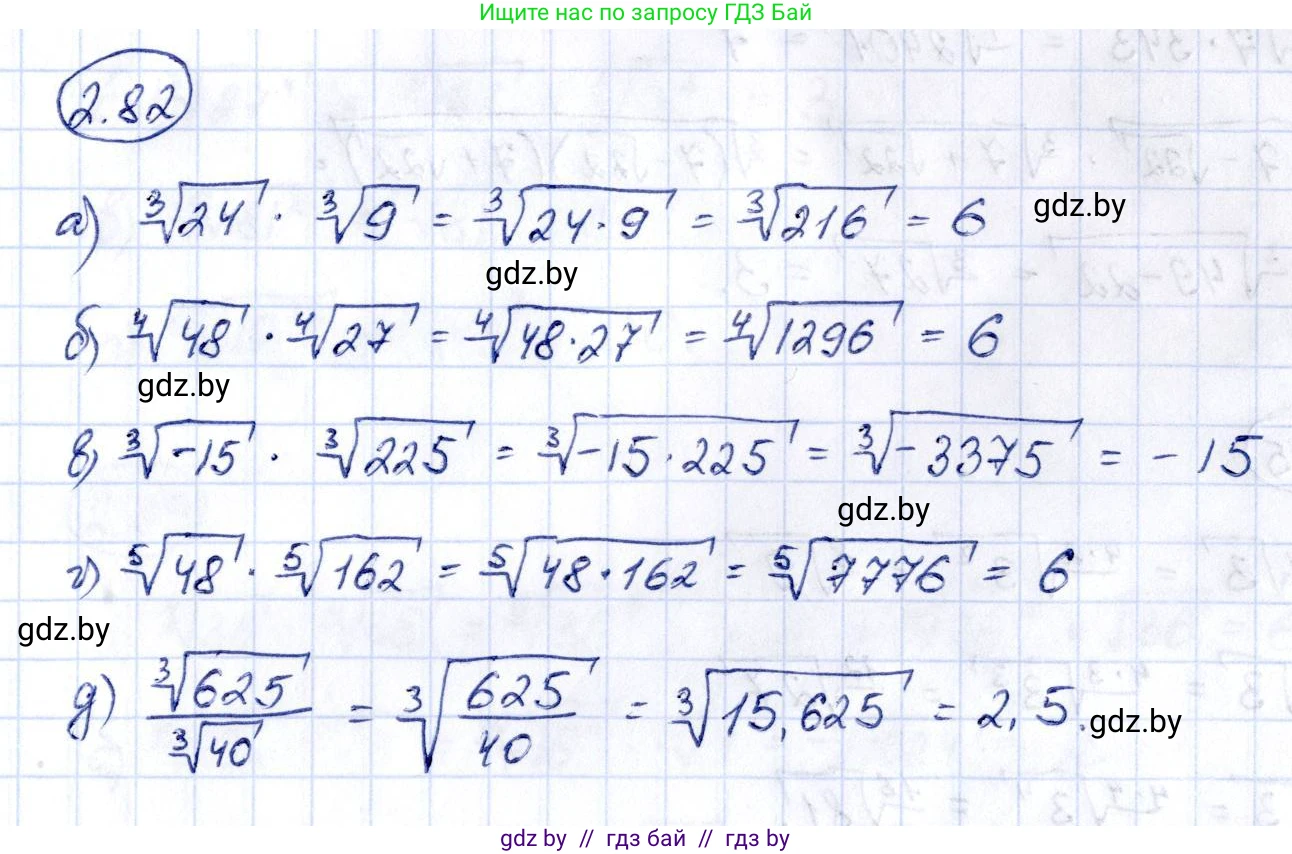 Ищите нас по запросу ГДЗ Бай
2.82
а) ∛24 · ∛9 = ∛(24·9) = ∛216 = 6 gdz.by
gdz.by
б) ∜48 · ∜27 = ∜(48·27) = ∜1296 = 6
gdz.by
в) ∛-15 · ∛225 = ∛(-15·225) = ∛-3375 = -15
gdz.by
г) ⁵√48 · ⁵√162 = ⁵√(48·162) = ⁵√7776 = 6
gdz.by
д) ∛625 / ∛40 = ∛(625/40) = ∛15,625 = 2,5. gdz.by
gdz by // гдз бай // гдз by